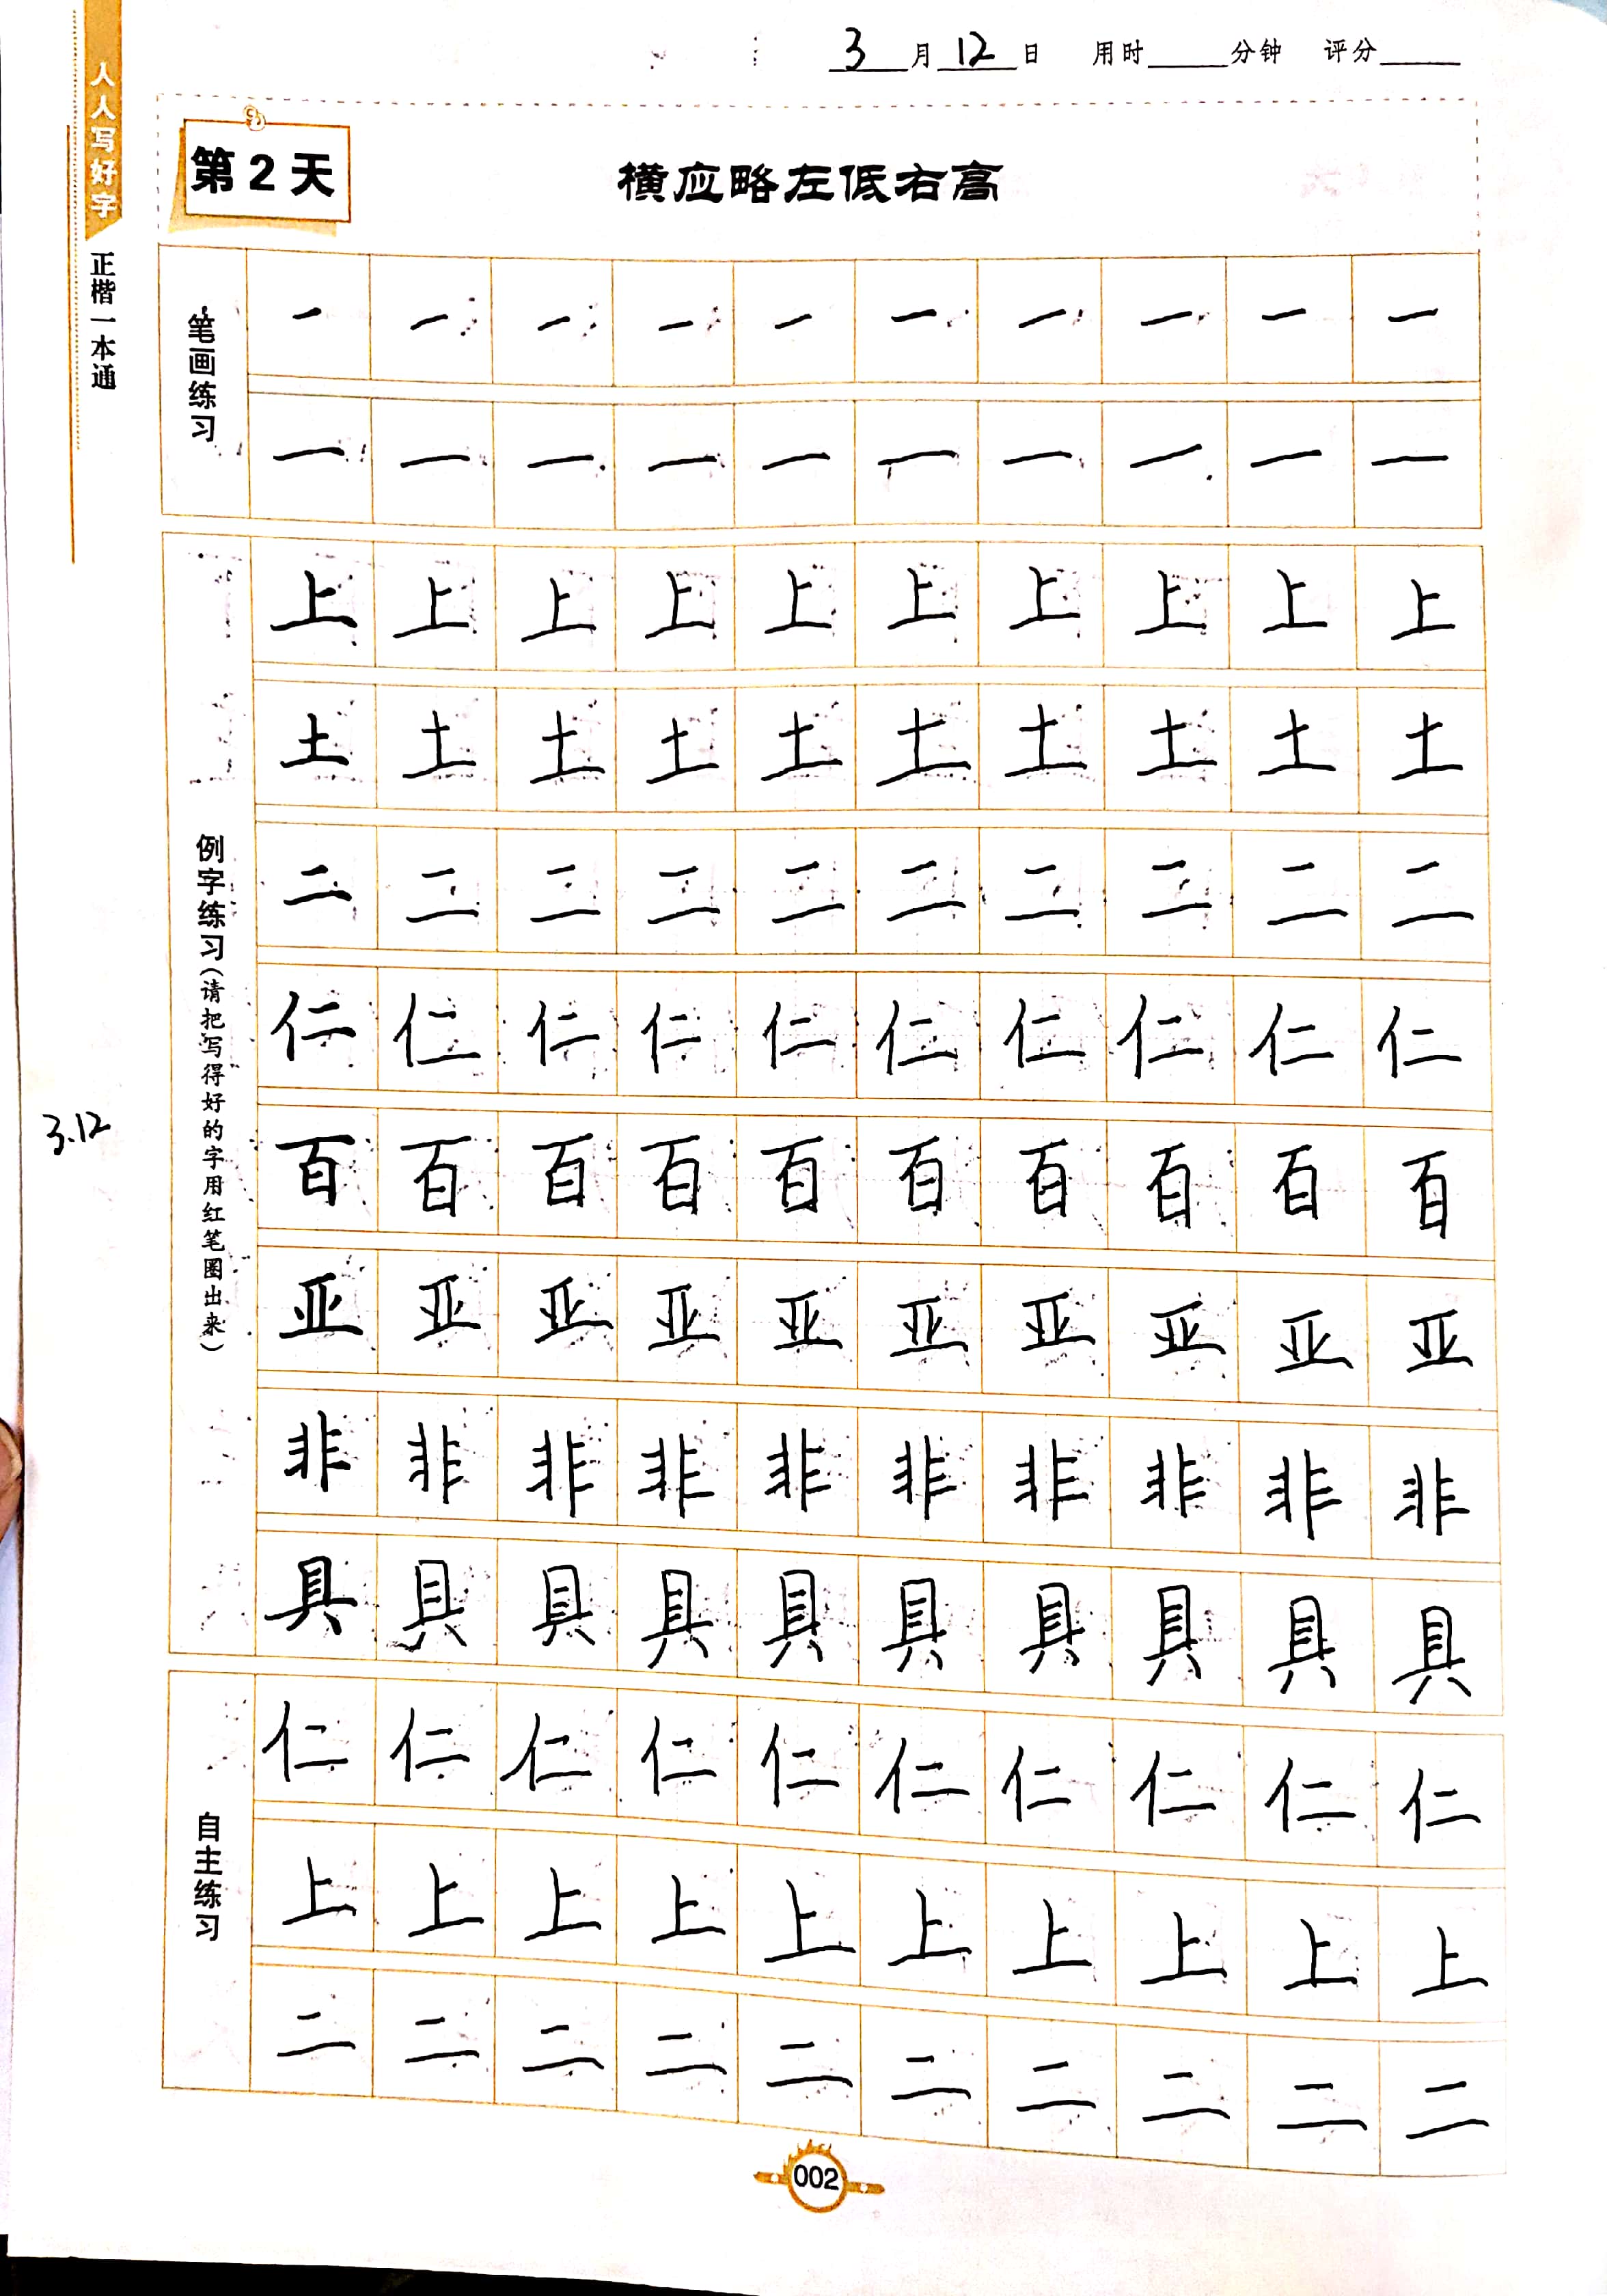 3月12日 用时 分钟 评分
人人写好字
正楷一本通
第2天
横应略左低右高
笔画练习
一一一一一一一一一一
一一一一一一一一一一
例字练习(请把写得好的字用红笔圈出来)
上上上上上上上上上上
土土土土土土土土土土
二二二二二二二二二二
仁仁仁仁仁仁仁仁仁仁
3.12
百百百百百百百百百百
亚亚亚亚亚亚亚亚亚亚
非非非非非非非非非非
具具具具具具具具具具
自主练习
仁仁仁仁仁仁仁仁仁仁
上上上上上上上上上上
二二二二二二二二二二
002